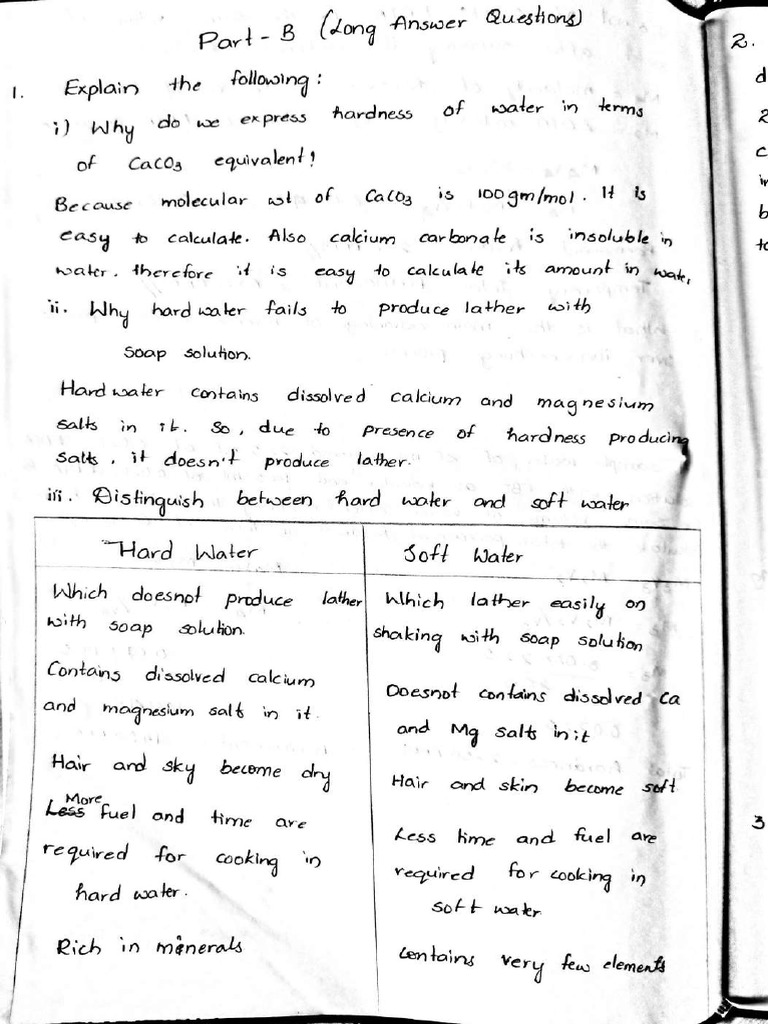 Part - B (Long Answer Questions)
1. Explain the following:
i) Why do we express hardness of water in terms
of CaCO3 equivalent!
Because molecular wt of CaCO3 is 100gm/mol. It is
easy to calculate. Also calcium carbonate is insoluble in
water. therefore it is easy to calculate its amount in water.
ii. Why hard water fails to produce lather with
soap solution.
Hard water contains dissolved calcium and magnesium
salts in it. So, due to presence of hardness producing
salts, it doesn't produce lather.
iii. Distinguish between hard water and soft water
Hard Water
Which doesnot produce lather
with soap solution.
Contains dissolved calcium
and magnesium salt in it.
Hair and sky become dry
More
Less fuel and time are
required for cooking in
hard water.
Rich in minerals
Soft Water
Which lather easily on
shaking with soap solution
Doesnot contains dissolved Ca
and Mg salts in it
Hair and skin become soft
Less time and fuel are
required for cooking in
soft water
Contains very few elements
2.
d
2
c
in
b
to
3